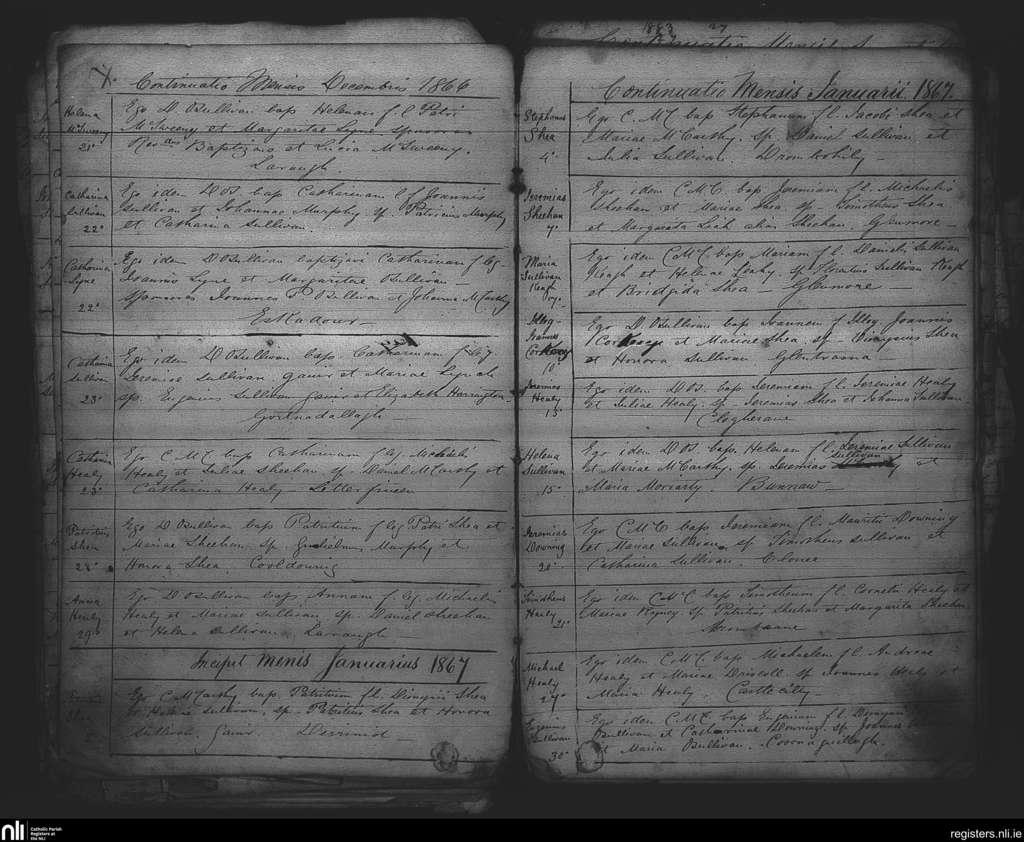 Continuatio Mensis Decembris 1866
Helena
McSweeny
21°
Ego D OSullivan bap Helenam f. l Patri
McSweeny et Margaritae Lyne sponsoribus
Baptizans et Lucia McSweeny.
Laragh
Catharina
Sullivan
22°
Ego idem D OS. bap Catharinam l f Joannis
Sullivan et Johannae Murphy sp. Patricius Murphy
et Catharina Sullivan.
Catharina
Lyne
22°
Ego idem D OSullivan baptizavi Catharinam f leg
Joannis Lyne et Margaritae OSullivan
sponsores Joannes OSullivan et Johanna McCarthy
Eskadour
Catharina
Sullivan
23°
Ego idem D OSullivan bap Catharinam f leg
Jeremiae Sullivan gauir et Mariae Lynch
sp. Eugenius Sullivan gauir et Elizabeth Harrington
Gortnadallagh
Catharina
Healy
25°
Ego C McC bap Catharinam f leg. Michaelis
Healy et Juliae Sheehan sp. Daniel McCarthy et
Catharina Healy Letterfineen
Patritius
Shea
28°
Ego D OSullivan bap Patritium f leg Patri Shea et
Mariae Sheehan sp. Gulielmus Murphy et
Honora Shea. Cooldouring
Anna
Healy
29°
Ego D OSullivan bap Annam f leg Michaelis
Healy et Mariae Sullivan sp. Daniel Sheehan
et Helena Sullivan. Laraugh
Incipit Menis Januarius 1867
Shea
Ego C McCarthy bap Patritium f l. Dionysii Shea
et Helenae Sullivan, sp. Patritius Shea et Honora
Sullivan Gauir. Derrincid
Continuatio Mensis Januarii 1867
Stephanus
Shea
4°
Ego C. McC bap Stephanum f l. Jacobi Shea et
Mariae McCarthy. sp. Daniel Sullivan et
Julia Sullivan. Drombohily
Jeremias
Sheehan
7°
Ego idem C McC. bap Jeremiam f l. Michaelis
Sheehan et Mariae Shea sp. Timotheus Shea
et Margarita Leah alias Sheehan. Glenmore
Maria
Sullivan
Keagh
Ego idem C McC. bap Mariam f l. Danielis Sullivan
Keagh et Helenae Leahy. sp Horatius Sullivan Keagh
et Bridgida Shea Glenmore
Illeg-
Joannes
10°
Ego D. OSullivan bap Joannem f Illeg Joannis
et Mariae Shea. sp. Dionysius Shea
et Honora Sullivan Glantrasna
Jeremias
Healy
15°
Ego idem D OS. bap Jeremiam f l. Jeremiae Healy
et Juliae Healy. sp. Jeremias Shea et Johanna Sullivan.
Clogherane
Helena
Sullivan
15°
Ego idem D OS bap. Helenam f l Jeremiae Sullivan
et Mariae McCarthy. sp. Jeremias Sullivan et
Maria Moriarty. Bunnaw
Jeremias
Downing
20°
Ego C McC bap Jeremiam f l. Mauritii Downing
et Mariae Sullivan. sp Timotheus Sullivan et
Catharina Sullivan. Clonee
Timotheus
Healy
21°
Ego idem C McC bap Timotheum f l Cornelii Healy et
Mariae sp Patritius Sheehan et Margarita Sheehan
Michael
Healy
27°
Ego idem C McC. bap Michaelem f l. Andreae
Healy et Mariae Driscoll sp Joannes Healy et
Maria Healy Castle city
Eugenius
Sullivan
30°
Ego idem C McC bap Eugenium f l. Dionysii
OSullivan et Catharinae Downing. sp. Joannes
et Maria OSullivan.
nli
Catholic Parish
Registers at
the NLI
registers.nli.ie